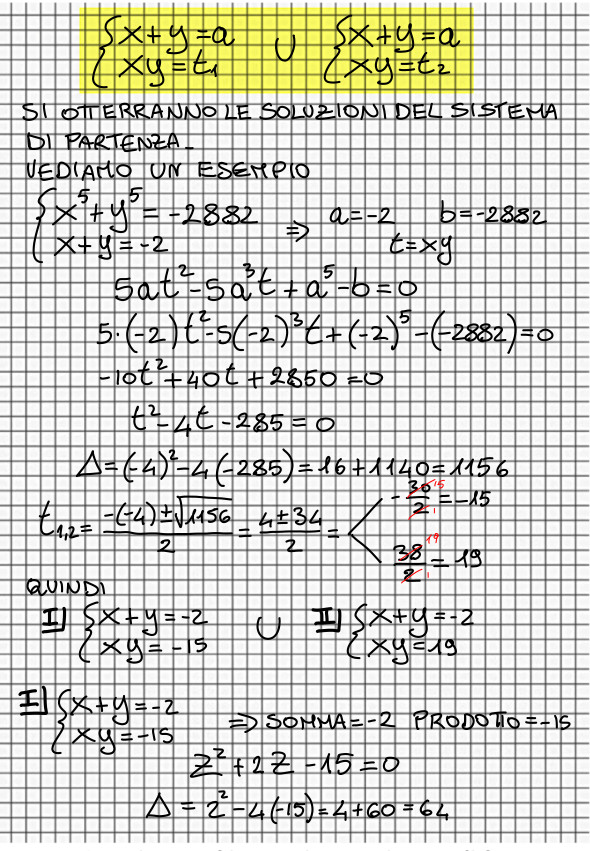 {x+y=a ∪ {x+y=a
{xy=t₁ {xy=t₂
SI OTTERRANNO LE SOLUZIONI DEL SISTEMA
DI PARTENZA.
VEDIAMO UN ESEMPIO
{x⁵+y⁵=-2882 ⇒ a=-2 b=-2882
{x+y=-2 t=xy
5at²-5a³t+a⁵-b=0
5·(-2)t²-5(-2)³t+(-2)⁵-(-2882)=0
-10t²+40t+2850=0
t²-4t-285=0
Δ=(-4)²-4(-285)=16+1140=1156
t₁,₂= (-(-4)±√1156)/2 = (4±34)/2 = -30/2=-15
38/2=19
QUINDI
I] {x+y=-2 ∪ II] {x+y=-2
{xy=-15 {xy=19
I] {x+y=-2 ⇒ SOMMA=-2 PRODOTTO=-15
{xy=-15
z²+2z-15=0
Δ=2²-4(-15)=4+60=64